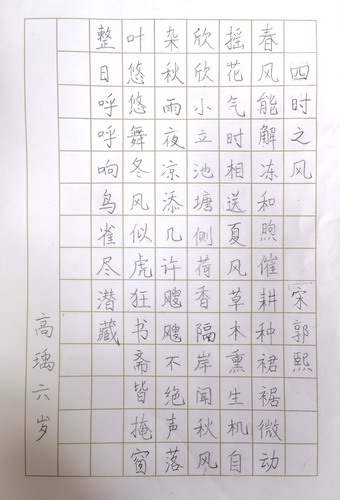 四时之风 宋郭熙
春风能解冻和煦催耕种裙裾微动
摇花气时相送夏风草木熏生机自
欣欣小立池塘侧荷香隔岸闻秋风
杂秋雨夜凉添几许飕飕不绝声落
叶悠悠舞冬风似虎狂书斋皆掩窗
整日呼呼响鸟雀尽潜藏
高瑀六岁